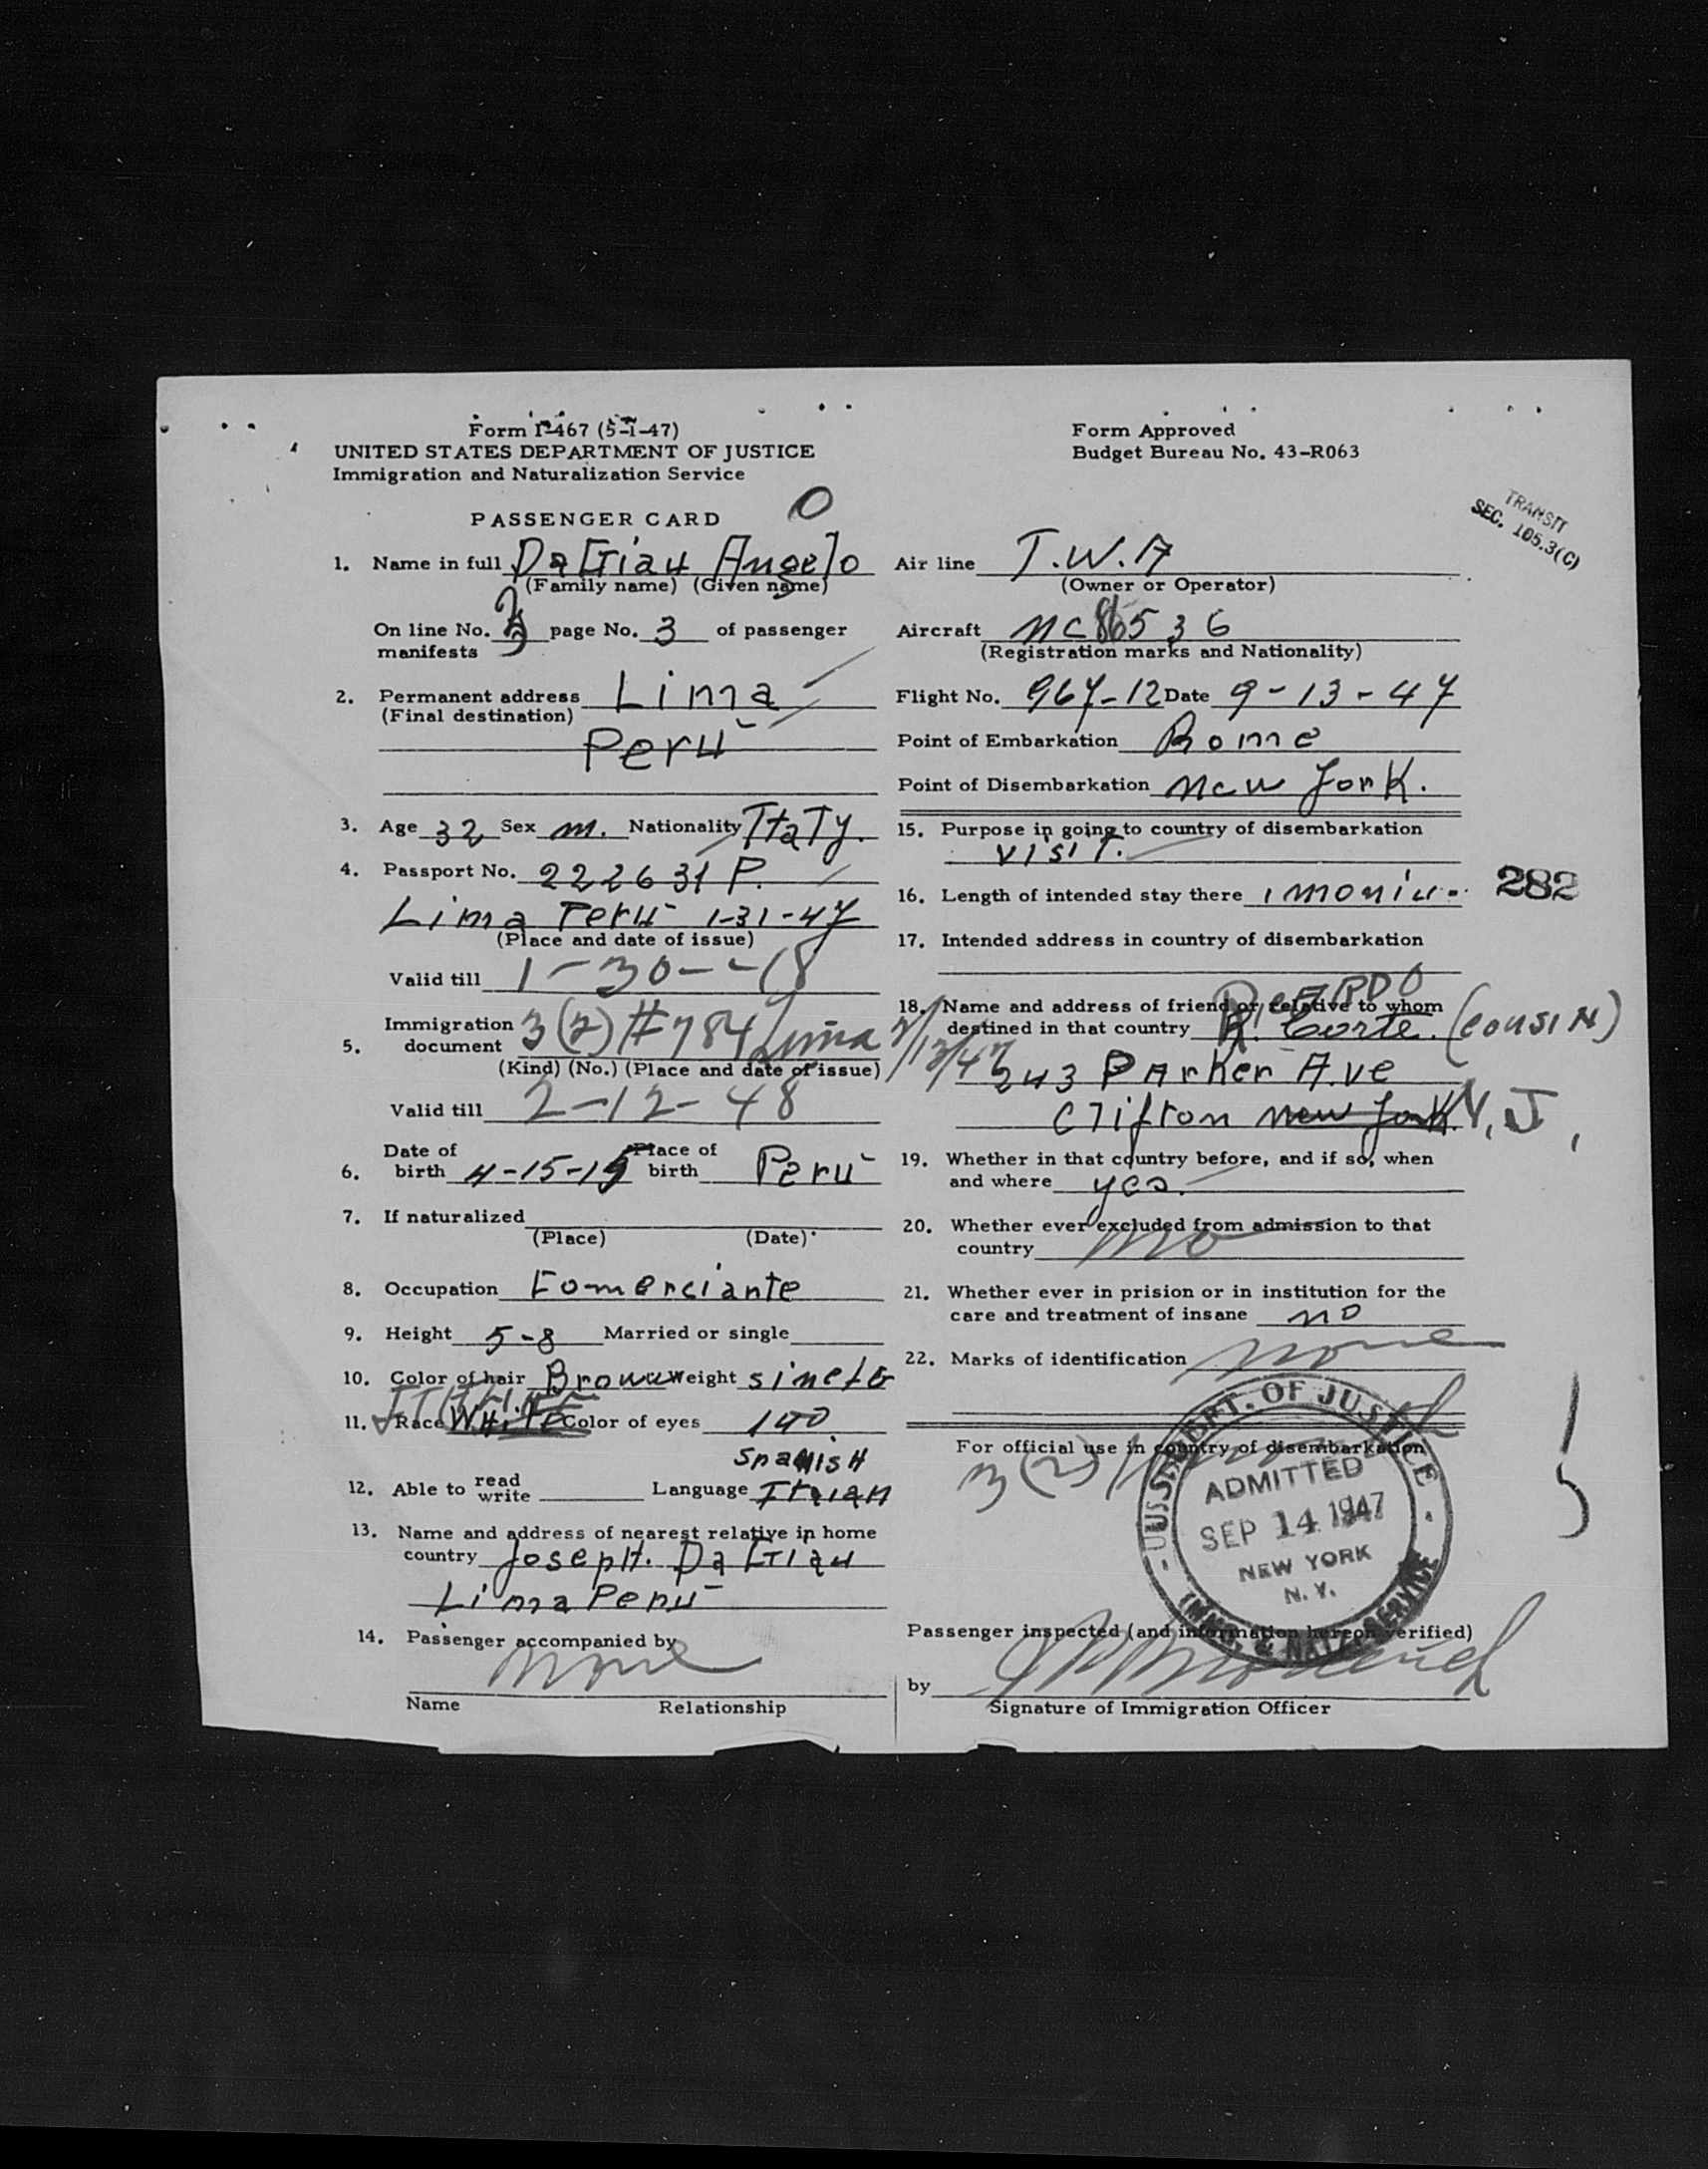 Form I-467 (5-1-47)
UNITED STATES DEPARTMENT OF JUSTICE
Immigration and Naturalization Service
Form Approved
Budget Bureau No. 43-R063
PASSENGER CARD
O
TRANSIT
SEC. 105.3(C)
1. Name in full Angelo
(Family name) (Given name)
On line No. page No. 3 of passenger
manifests
2. Permanent address Lima
(Final destination)
Perú
3. Age 32 Sex m. Nationality ITaTy.
4. Passport No. 222631 P.
Lima Perú 1-31-47
(Place and date of issue)
Valid till 1-30-48
Immigration
5. document 3(2) #784 Lima 2/12/47
(Kind) (No.) (Place and date of issue)
Valid till 2-12-48
6. Date of birth 4-15-15 Place of birth Perú
7. If naturalized
(Place) (Date)
8. Occupation Comerciante
9. Height 5-8 Married or single
10. Color of hair Brown Weight
11. Race White Color of eyes 140
Spanish
12. Able to read write Language
13. Name and address of nearest relative in home
country Joseph.
Lima Perú
14. Passenger accompanied by
none
Name Relationship
Air line T.W.A
(Owner or Operator)
Aircraft NC 86536
(Registration marks and Nationality)
Flight No. 967-12 Date 9-13-47
Point of Embarkation Rome
Point of Disembarkation New York.
15. Purpose in going to country of disembarkation
visiT.
16. Length of intended stay there 1
282
17. Intended address in country of disembarkation
18. Name and address of friend or relative to whom
destined in that country R. Corte. (cousin)
243 Parker Ave
Clifton New York N.J.
19. Whether in that country before, and if so, when
and where yes.
20. Whether ever excluded from admission to that
country no
21. Whether ever in prision or in institution for the
care and treatment of insane no
22. Marks of identification none
For official use in country of disembarkation
3(2)
U.S. DEPT. OF JUSTICE
ADMITTED
SEP 14 1947
NEW YORK
N.Y.
IMM. & NATZ. SERVICE
Passenger inspected (and information hereon verified)
by
Signature of Immigration Officer